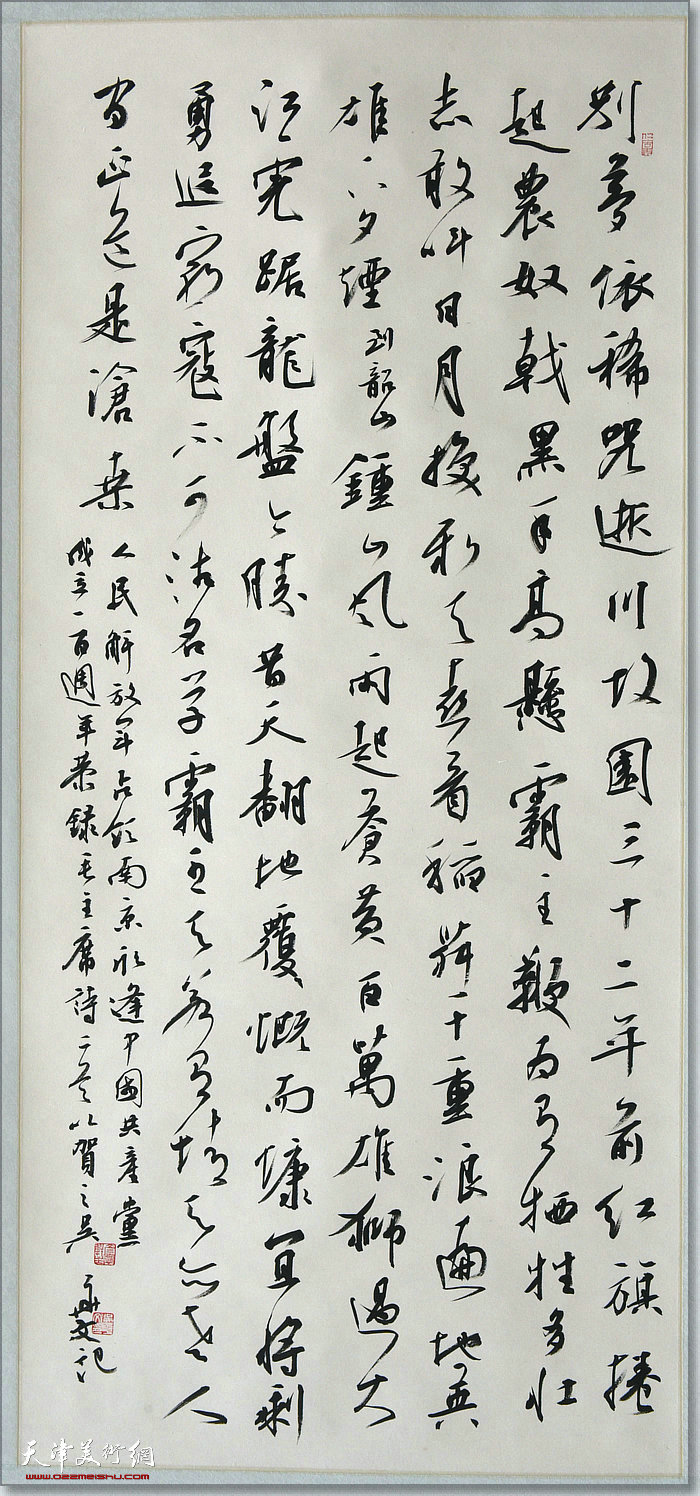 别夢依稀咒逝川故園三十二年前红旗捲
起農奴戟黑手高懸霸主鞭为有牺牲多壯
志敢叫日月换新天喜看稻菽千重浪遍地英
雄下夕煙到韶山鍾山风雨起蒼黄百萬雄獅過大
江虎踞龍盤今勝昔天翻地覆慨而慷宜将剩
勇追窮寇不可沽名学霸王天若有情天亦老人
间正道是滄桑
人民解放军占领南京欣逢中國共產黨
成立一百週年恭録毛主席詩二首以賀之吴
记
天津美術網
www.022meishu.com